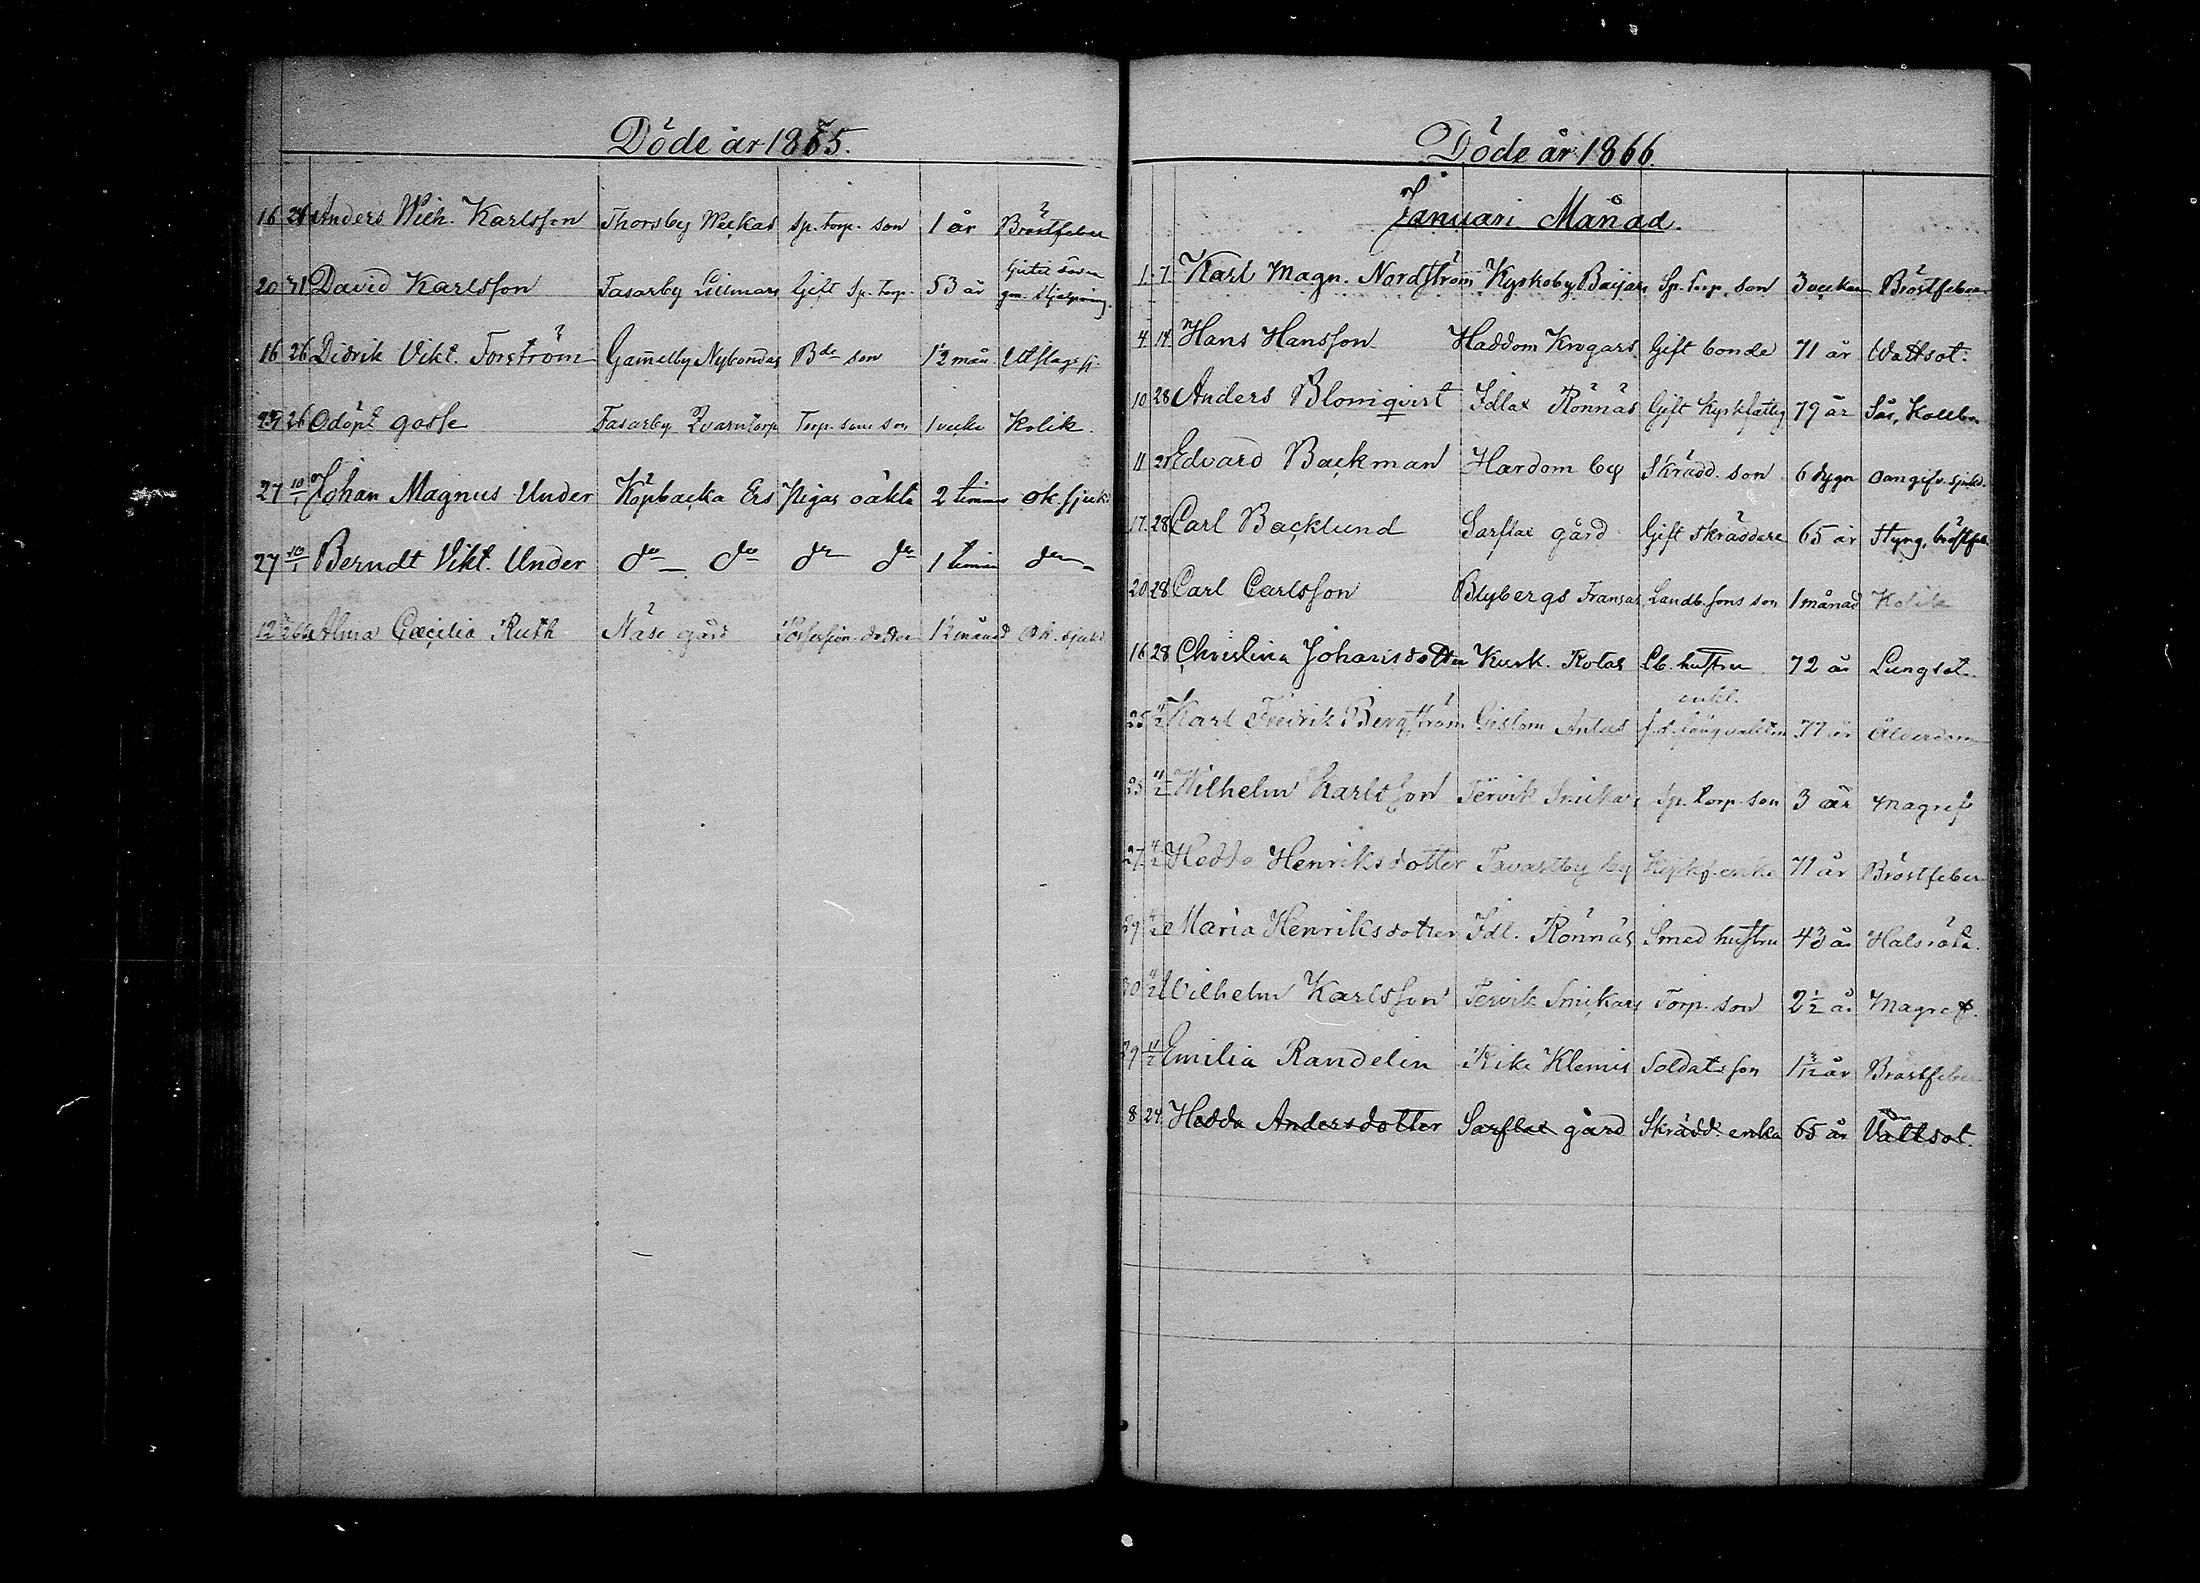 Döde år 1865.
16 26 Anders Wilh. Karlsson Thorsby Weckas Sp. torp. son 1 år Bröstfeber
20 31 David Karlsson Fasarby Lillmars Gift Sp. Torp. 53 år
16 26 Didrik Vikt. Forström Gammelby Nybondas Bde son 1½ mån Utslagssj.
26 Odöpt gosse Fasarby Qvarntorp Torp. sons son 1 vecka Kolik.
27 10/1 Johan Magnus Under Köpbacka Ers Pigas oäkta 2 timmar ok. sjukd.
27 10/1 Berndt Vikt. Under do do do do 1 timme do
12 Alma Cæcilia Ruth Näse gård dotter 1½ månad ok. sjukd
Döde år 1866.
Januari Månad.
1 7 Karl Magn. Nordström Kyrkoby Baijars Sp. Torp. son 3 veckor Bröstfeber
4 14 Hans Hansson Haddom Krogars Gift bonde 71 år Wattsot.
10 28 Anders Blomqvist Idlax Rönnäs Gift Kyrkfattig 79 år Sår, Kallbr.
11 21 Edvard Backman Hardom by Skrädd. son 6 dygn oangifv. sjukd.
17. 28 Carl Backlund Sarflax gård Gift Skräddare 65 år Styng, bröstfeb.
20 28 Carl Carlsson Blybergs Fransas Landb. sons son 1 månad Kolik
16 28 Christina Johansdotter Kusk. Rotas Lb. hustru 72 år Lungsot.
25 4/2 Karl Fredrik Bergström Gislom Antas enkl. 77 år Ålderdom
25 4/2 Wilhelm Karlsson Tervik Smickars Sp. torp. son 3 år Magref
27 4/2 Hedda Henriksdotter Tavastby by Kyrkf. enka 71 år Bröstfeber
29 4/2 Maria Henriksdotter Idl. Rönnäs Smed hustru 43 år Halsröta.
30 4/2 Wilhelm Karlsson Tervik Smickars Torp. son 2½ år Magref.
29 11/2 Emilia Randelin Rike Klemis Soldats son 1 3/12 år Bröstfeber
8 24 Hedda Andersdotter Sarflax gård Skrädd. enka 65 år Vattsot.